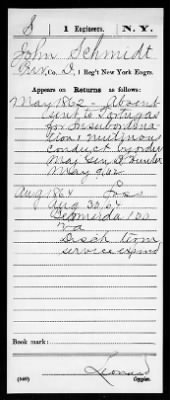 S | 1 Engineers. | N. Y.
John Schmidt
Co. D, 1 Reg't New York Engrs.
Appears on Returns as follows:
May 1862 - Absent
sent to Tortugas
for Insubordina
tion & mutinous
conduct by order
Maj Gen Hunter
May 9, 62
Aug 1864 Loss
Aug 30, 64
Va
Disch term
service expired
Book mark:
Leonard
Copyist.